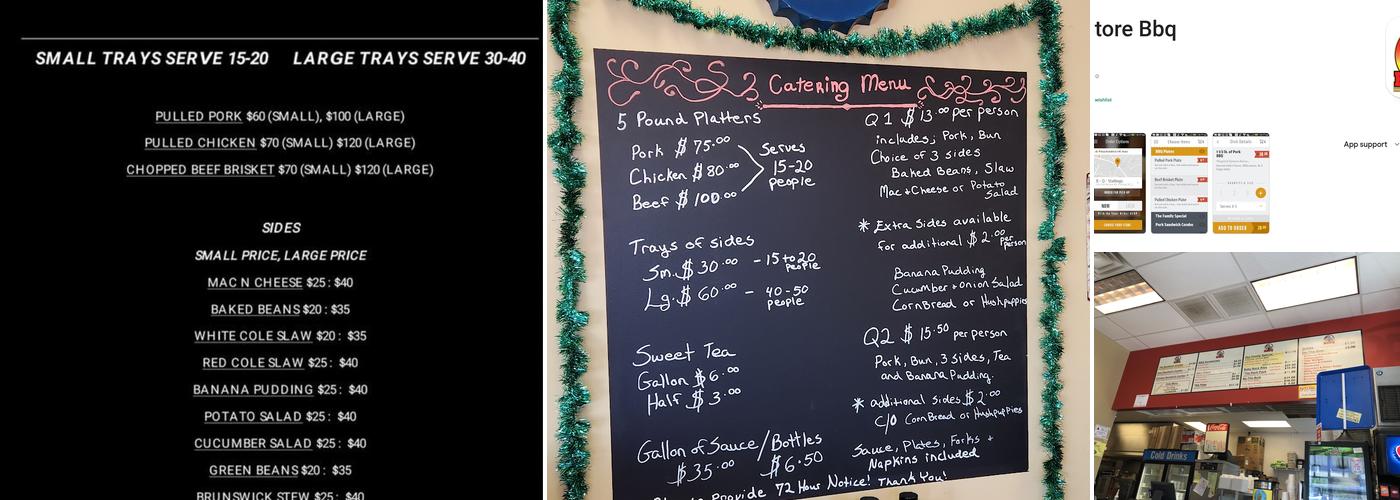 SMALL TRAYS SERVE 15-20 LARGE TRAYS SERVE 30-40
PULLED PORK $60 (SMALL), $100 (LARGE)
PULLED CHICKEN $70 (SMALL) $120 (LARGE)
CHOPPED BEEF BRISKET $70 (SMALL) $120 (LARGE)
SIDES
SMALL PRICE, LARGE PRICE
MAC N CHEESE $25: $40
BAKED BEANS $20: $35
WHITE COLE SLAW $20: $35
RED COLE SLAW $25: $40
BANANA PUDDING $25: $40
POTATO SALAD $25: $40
CUCUMBER SALAD $25: $40
GREEN BEANS $20: $35
BRUNSWICK STEW $25: $40
Catering Menu
5 Pound Platters
Pork $75.00
Chicken $80.00
Beef $100.00
Serves
15-20
people
Trays of sides
Sm. $30.00 - 15 to 20 people
Lg. $60.00 - 40-50 people
Sweet Tea
Gallon $6.00
Half $3.00
Gallon of Sauce/Bottles
$35.00 $6.50
Provide 72 Hour Notice! Thank You!
Q1 $13.00 per person
includes; Pork, Bun
Choice of 3 sides
Baked Beans, Slaw
Mac+Cheese or Potato Salad
* Extra Sides available
for additional $2.00 per person
Banana Pudding
Cucumber + onion Salad
CornBread or Hushpuppies
Q2 $15.50 per person
Pork, Bun, 3 sides, Tea
and Banana Pudding.
* additional Sides $2.00
C/O CornBread or Hushpuppies
Sauce, Plates, Forks +
Napkins included
tore Bbq
wishlist
App support
Order Options
Choose Items
BBQ Plates
Pulled Pork Plate
Beef Brisket Plate
Pulled Chicken Plate
The Family Special
Pork Sandwich Combo
ADD TO ORDER
Cold Drinks
Coca-Cola